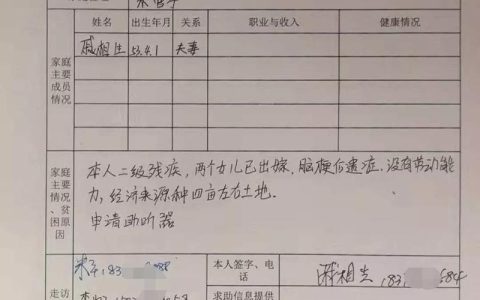 姓名 出生年月 关系 职业与收入 健康情况
戚相生 53.4.1 夫妻
家庭
主要
成员
情况
本人二级残疾，两个女儿已出嫁，脑梗后遗症，没有劳动能
力，经济来源种四亩左右土地.
申请助听器
家庭
主要
情况
、贫
困原
因
本人签字、电
话
戚相生
走访
求助信息提供